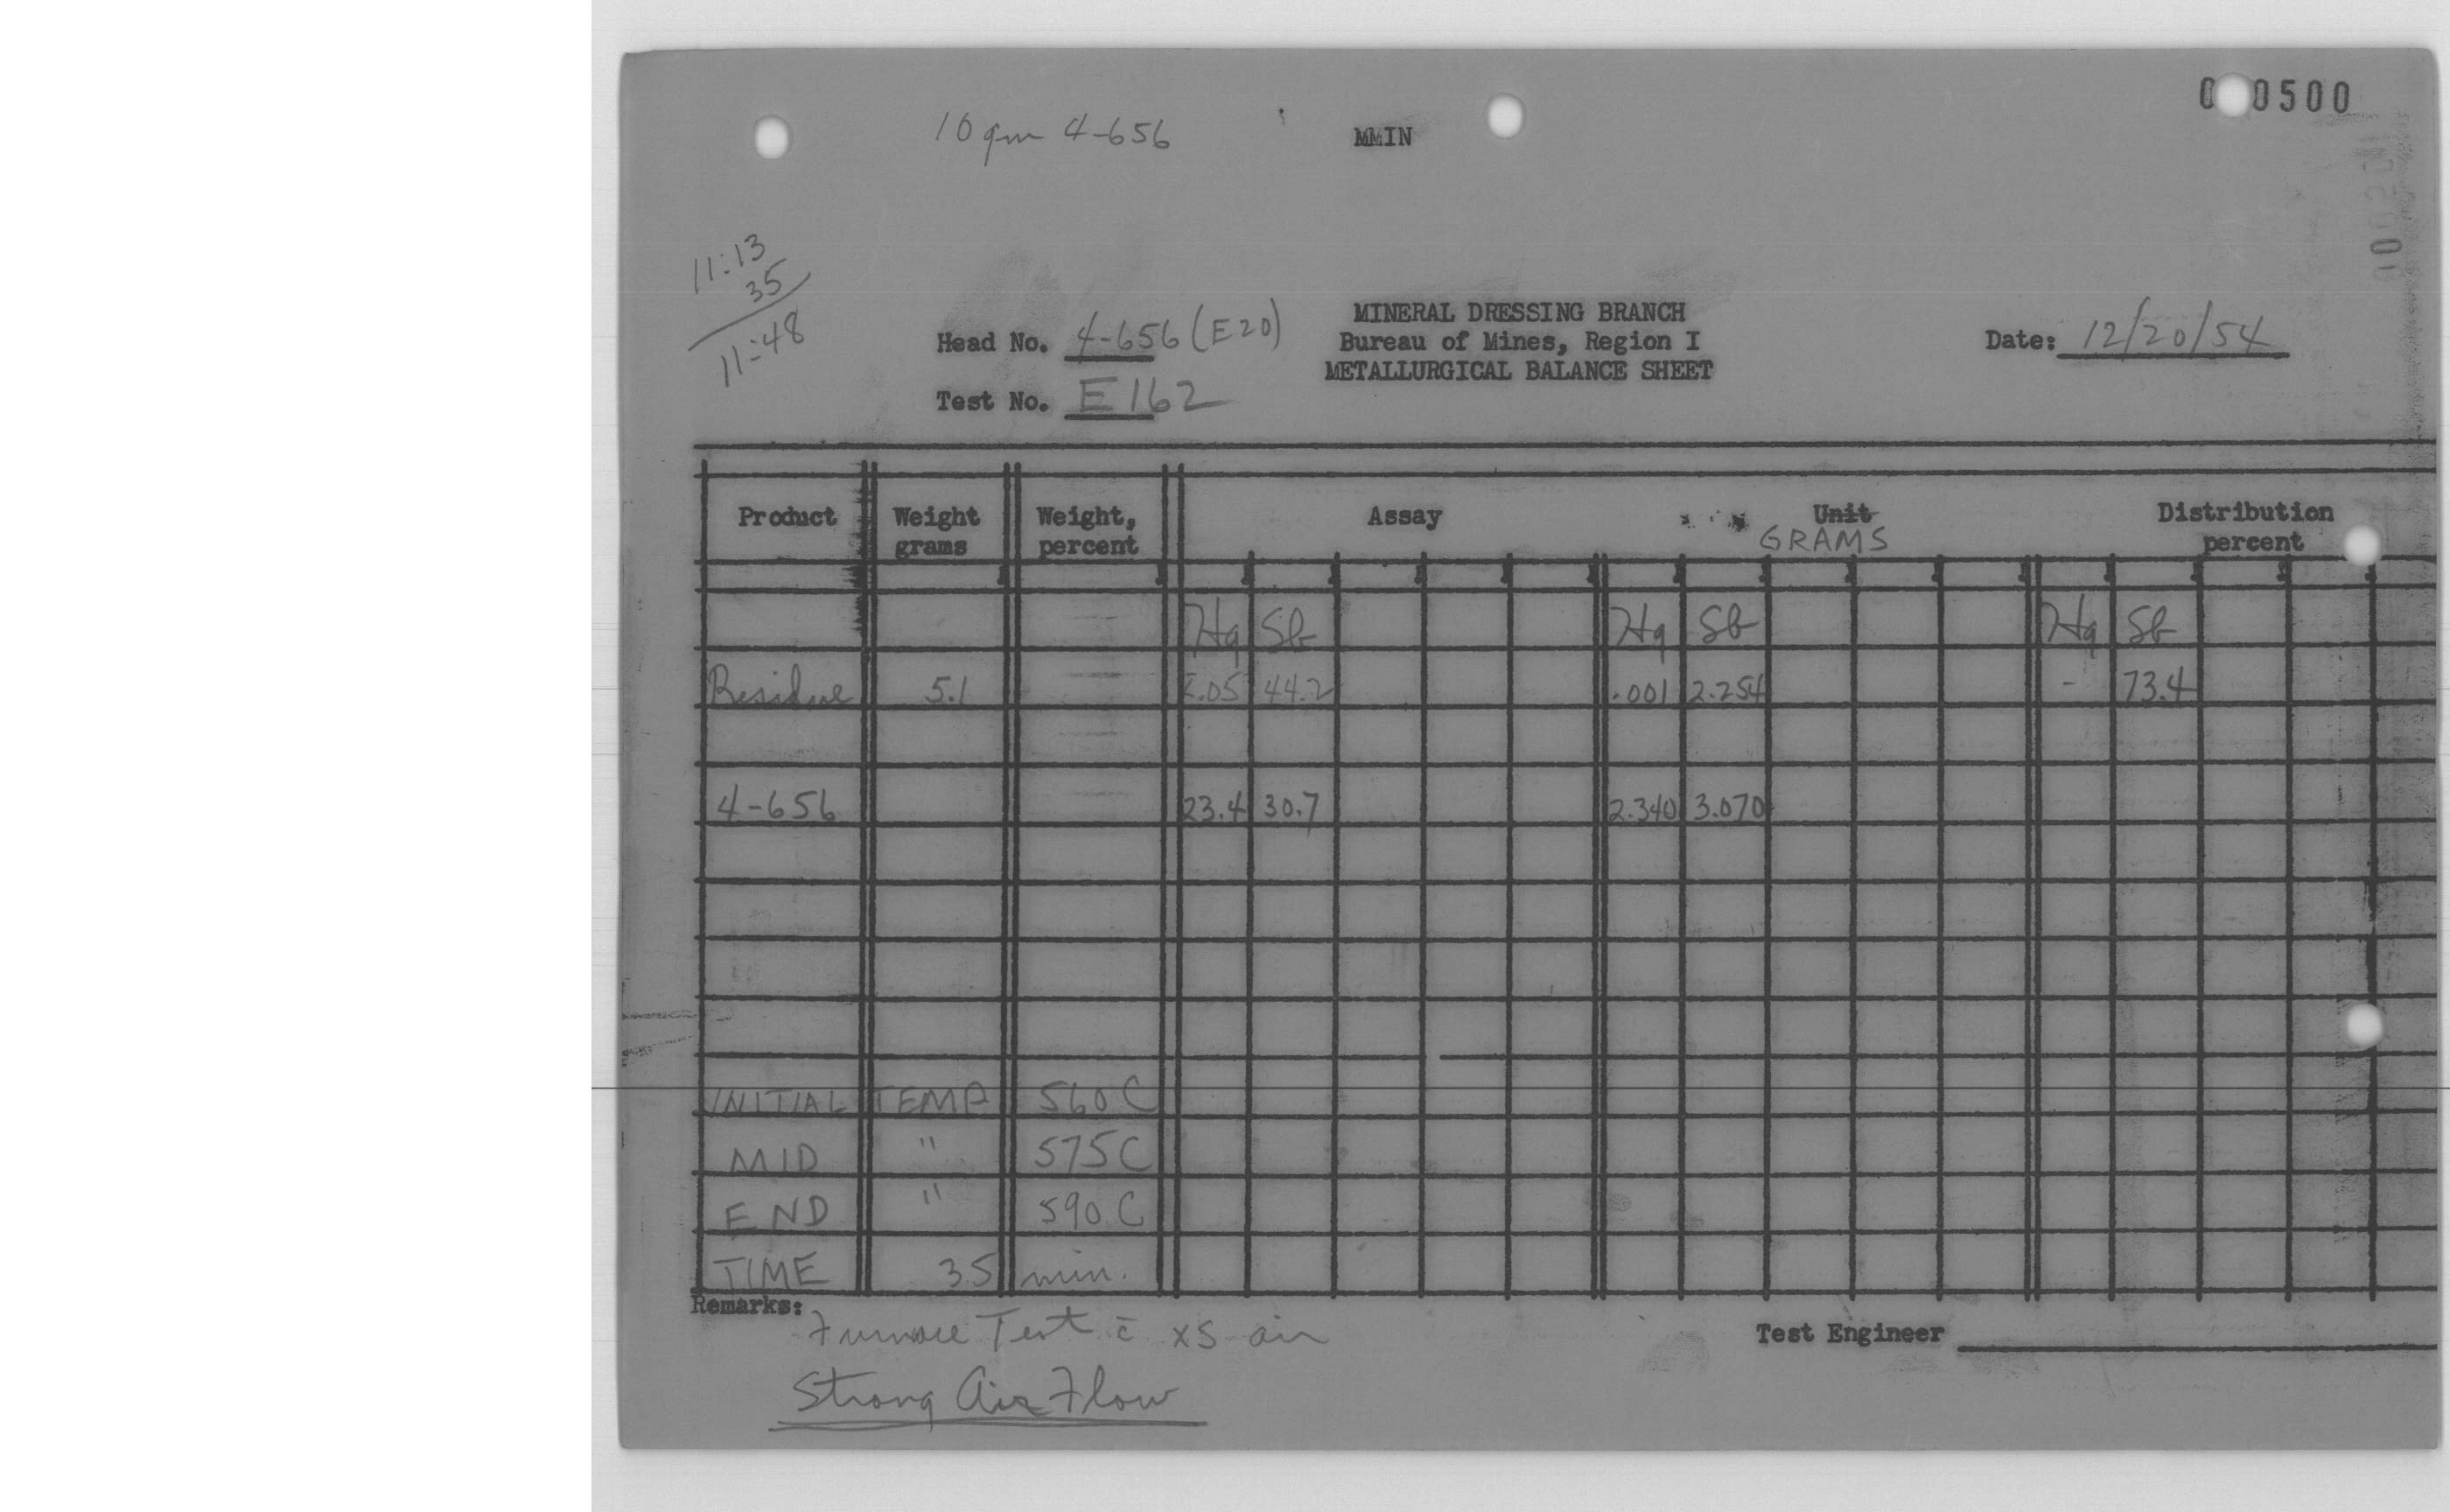 0 0500
10 gm 4-656
MMIN
11:13
35
11:48
MINERAL DRESSING BRANCH
Head No. 4-656 (E20)
Bureau of Mines, Region I
Date: 12/20/54
METALLURGICAL BALANCE SHEET
Test No. E162
Product Weight grams Weight, percent Assay Unit GRAMS Distribution percent
Hg Sb Hg Sb Hg Sb
Residue 5.1 .05 44.2 .001 2.254 - 73.4
4-656 23.4 30.7 2.340 3.070
INITIAL TEMP 560 C
MID " 575 C
END " 590 C
TIME 35 min.
Remarks:
Furnace Test c̄ xs air
Test Engineer
Strong Air Flow